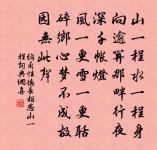 山一程水一程身
向榆關那畔行夜
深千帳燈
風一更雪一更聒
碎鄉心夢不成故
園無此聲
納蘭性德長相思山一
程詞典網